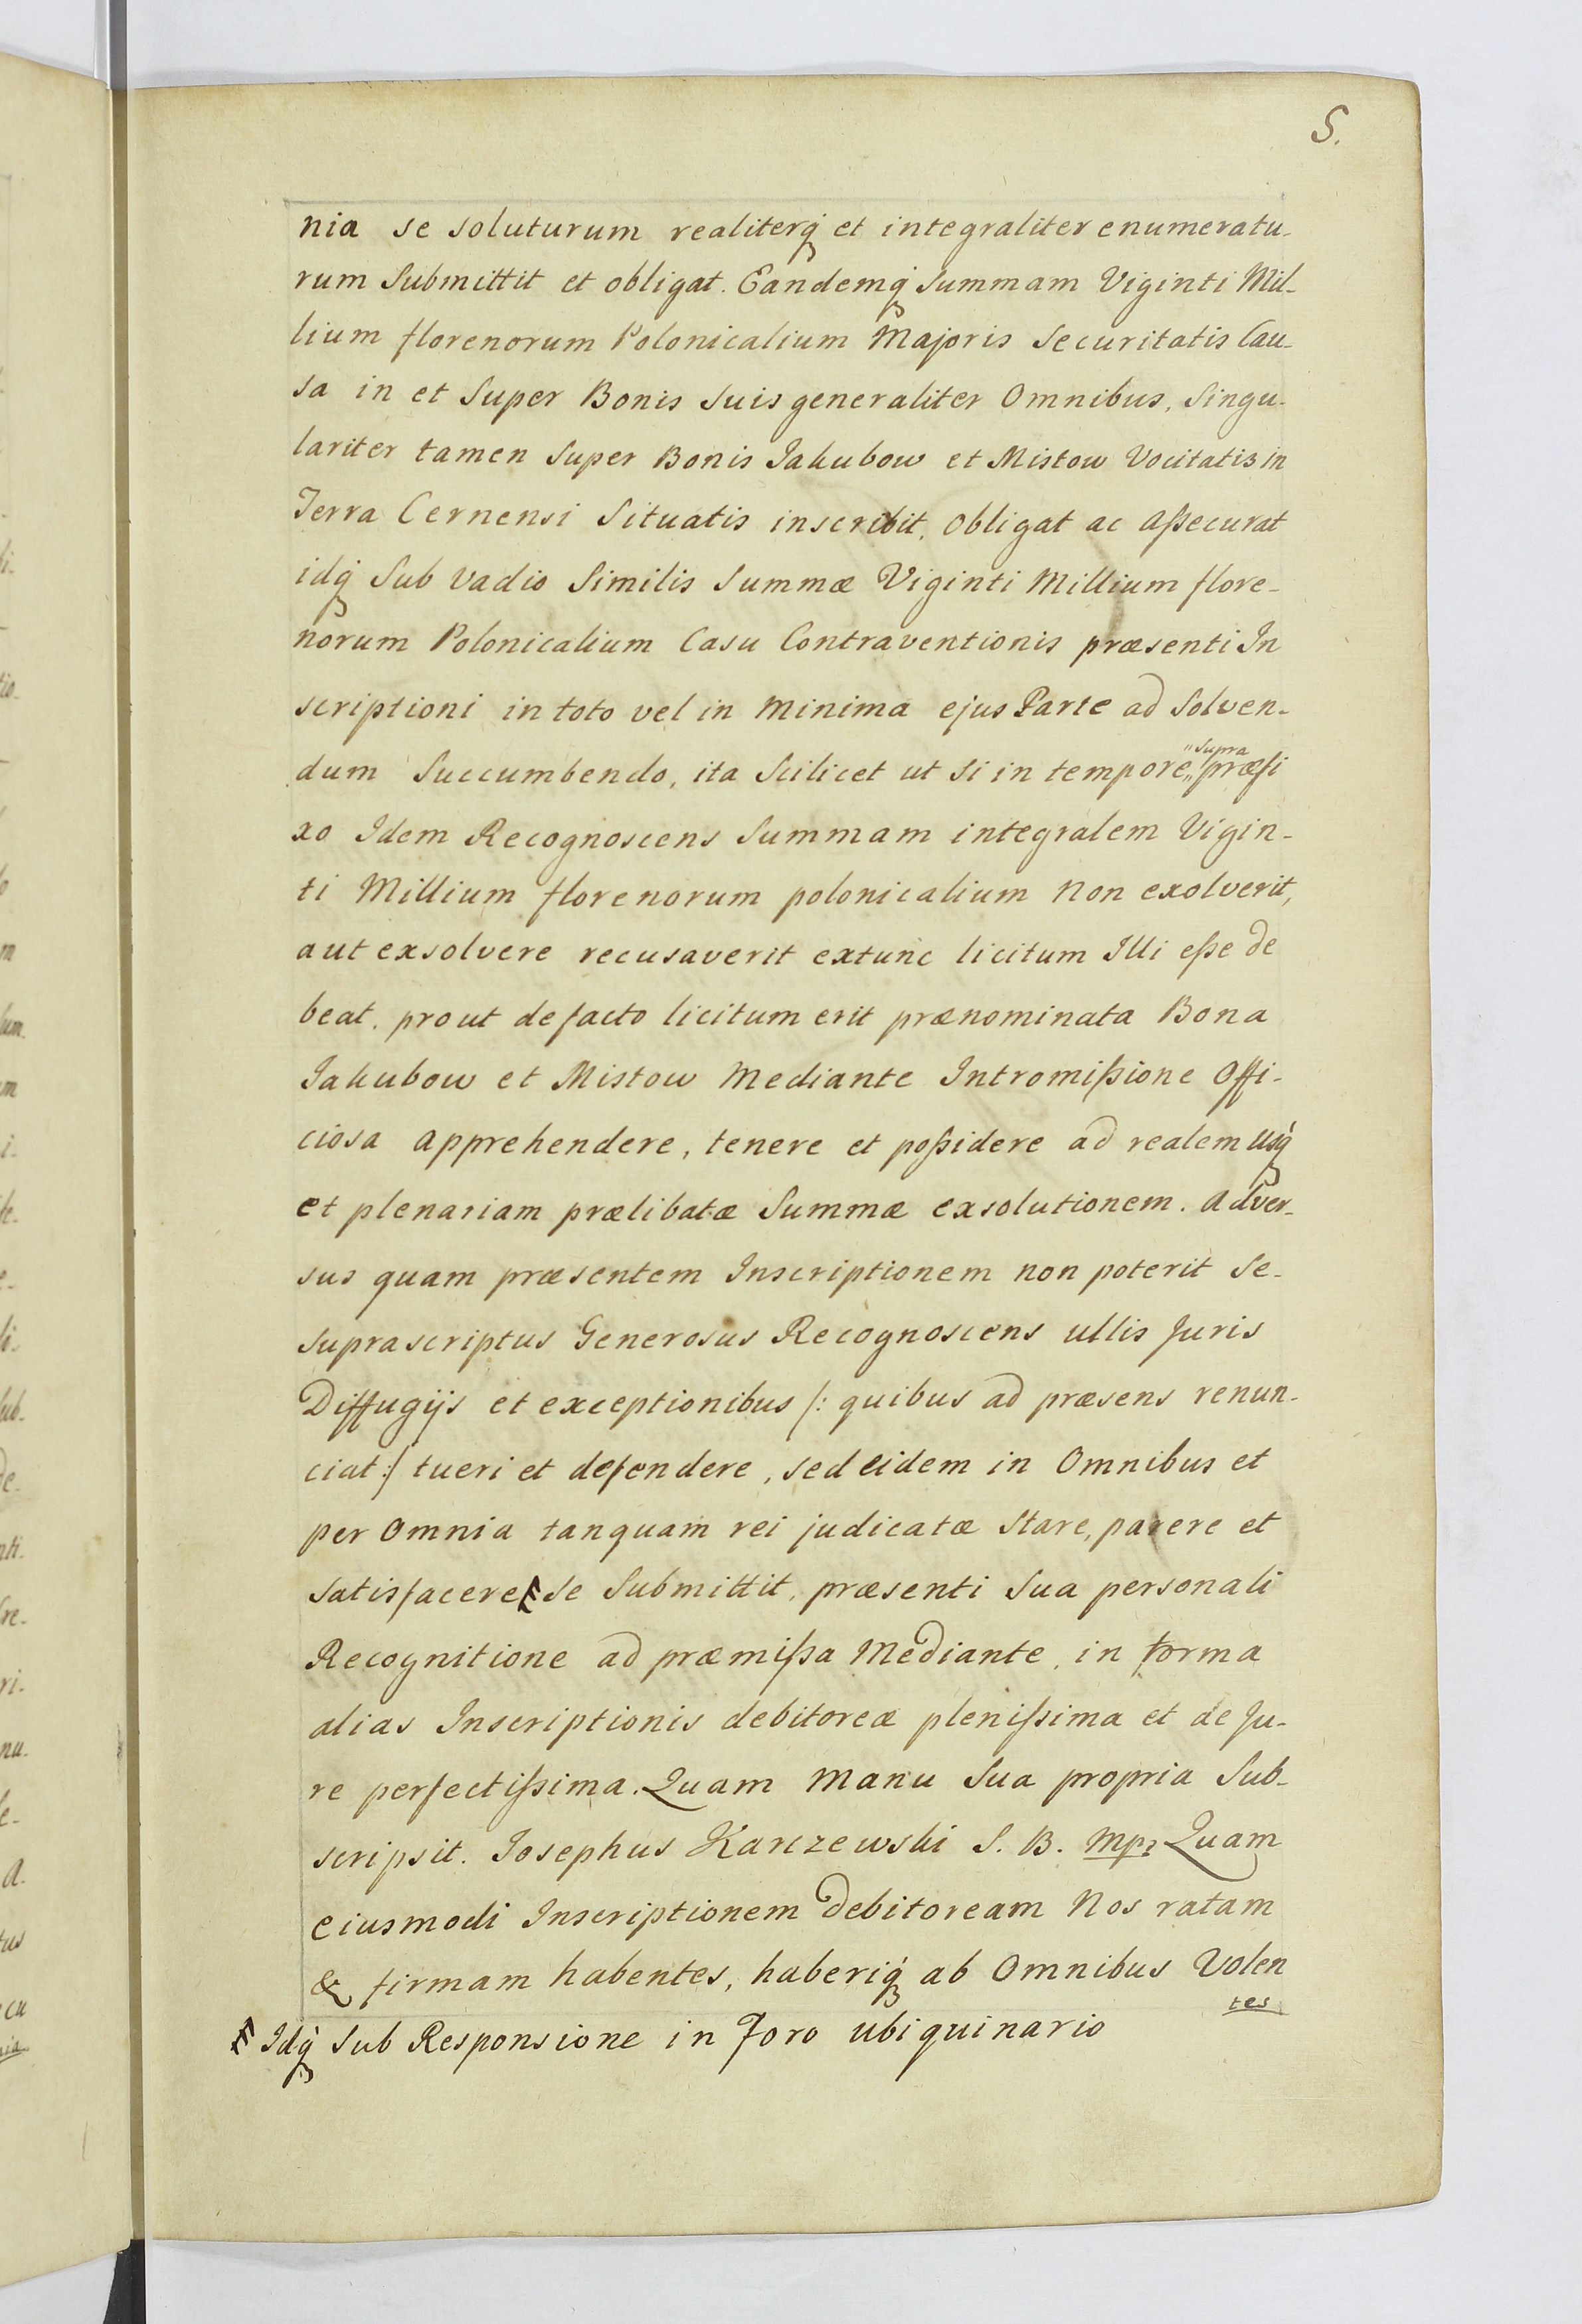 5.
nia se soluturum realiterq́ et integraliter enumeratu-
rum Submittit et obligat. Eandemq́ Summam Viginti Mil-
lium florenorum Polonicalium Majoris Securitatis Cau-
sa in et Super Bonis Suis generaliter Omnibus, Singu-
lariter tamen Super Bonis Jakubow et Mistow Vocitatis in
Terra Cernensi Situatis inscribit, obligat ac aſsecurat
idq́ Sub vadio Similis Summæ Viginti Millium flore-
norum Polonicalium Casu Contraventionis præsenti In
scriptioni in toto vel in Minima ejus Parte ad Solven-
dum Succumbendo, ita Scilicet ut Si in tempore „Supra„ præfi
xo Idem Recognoscens Summam integralem Vigin-
ti Millium florenorum polonicalium Non exolverit,
aut exsolvere recusaverit extunc licitum Illi eſse de
beat. prout de facto licitum erit prænominata Bona
Jakubow et Mistow Mediante Intromiſsione Offi-
ciosa apprehendere, tenere et poſsidere ad realem usq́
et plenariam prælibatæ Summæ exsolutionem. Adver-
sus quam præsentem Inscriptionem non poterit Se-
suprascriptus Generosus Recognoscens ullis Juris
Diffugijs et exceptionibus /: quibus ad præsens renun-
ciat :/ tueri et defendere, sed eidem in Omnibus et
per Omnia tanquam rei judicatæ Stare, parere et
Satisfacere Se Submittit, præsenti Sua personali
Recognitione ad præmiſsa Mediante, in forma
alias Inscriptionis debitoreæ pleniſsima et de Ju-
re perfectiſsima. Quam Manu Sua propria Sub-
scripsit. Josephus Karczewski S. B. mp. Quam
eiusmodi Inscriptionem debitoream Nos ratam
& firmam habentes, haberiq́ ab Omnibus Volen
tes
Idq́ Sub Responsione in Foro ubiquinario